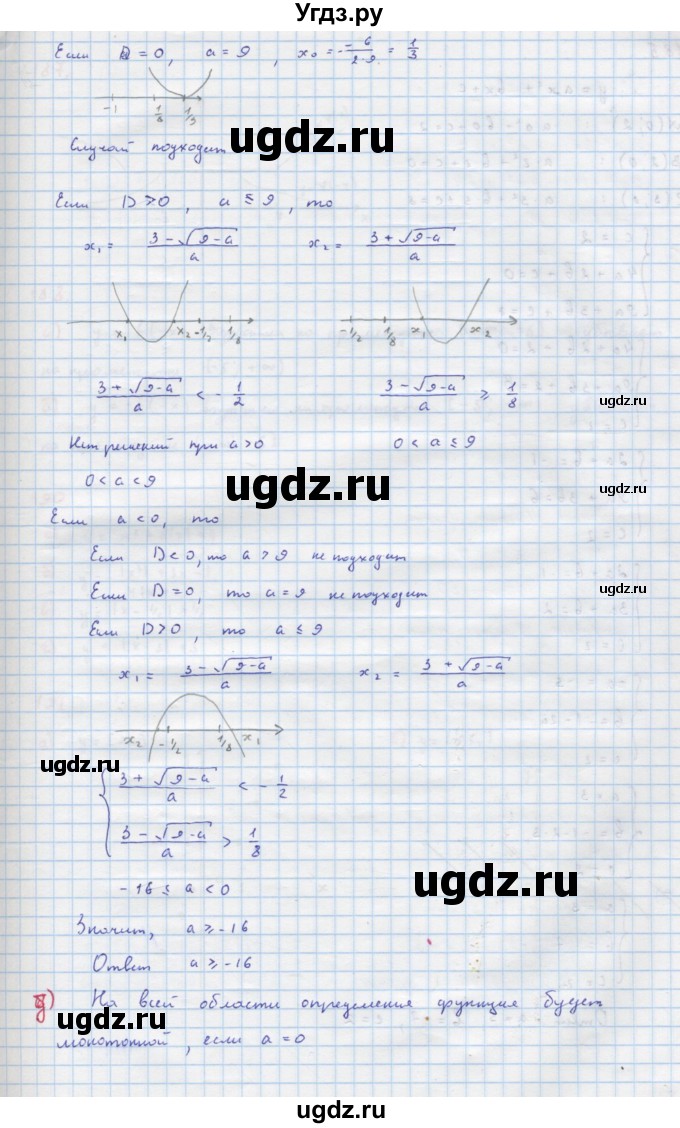 Угдз.ру
Если D = 0, a = 9, x₀ = -\frac{-6}{2·9} = \frac{1}{3}
-1 \frac{1}{8} 1/3
Случай подходит
ugdz.ru
Если D > 0, a ≤ 9, то
x₁ = \frac{3 - √(9-a)}{a} x₂ = \frac{3 + √(9-a)}{a}
x₁ x₂ -1/2 1/8 -1/2 1/8 x₁ x₂
\frac{3 + √(9-a)}{a} < -\frac{1}{2} \frac{3 - √(9-a)}{a} ≥ \frac{1}{8}
ugdz.ru
Нет решений при a > 0 0 < a ≤ 9
0 < a < 9
ugdz.ru
Если a < 0, то
Если D < 0, то a > 9 не подходит
Если D = 0, то a = 9 не подходит
ugdz.ru
Если D > 0, то a ≤ 9
x₁ = \frac{3 - √(9-a)}{a} x₂ = \frac{3 + √(9-a)}{a}
x₂ -1/2 1/8 x₁
ugdz.ru
{ \frac{3 + √(9-a)}{a} < -\frac{1}{2}
\frac{3 - √(9-a)}{a} > \frac{1}{8}
-16 ≤ a < 0
ugdz.ru
Значит, a ≥ -16
Ответ a ≥ -16
На всей области определения функция будет
ugdz.ru
монотонной, если a = 0
ugdz.ru